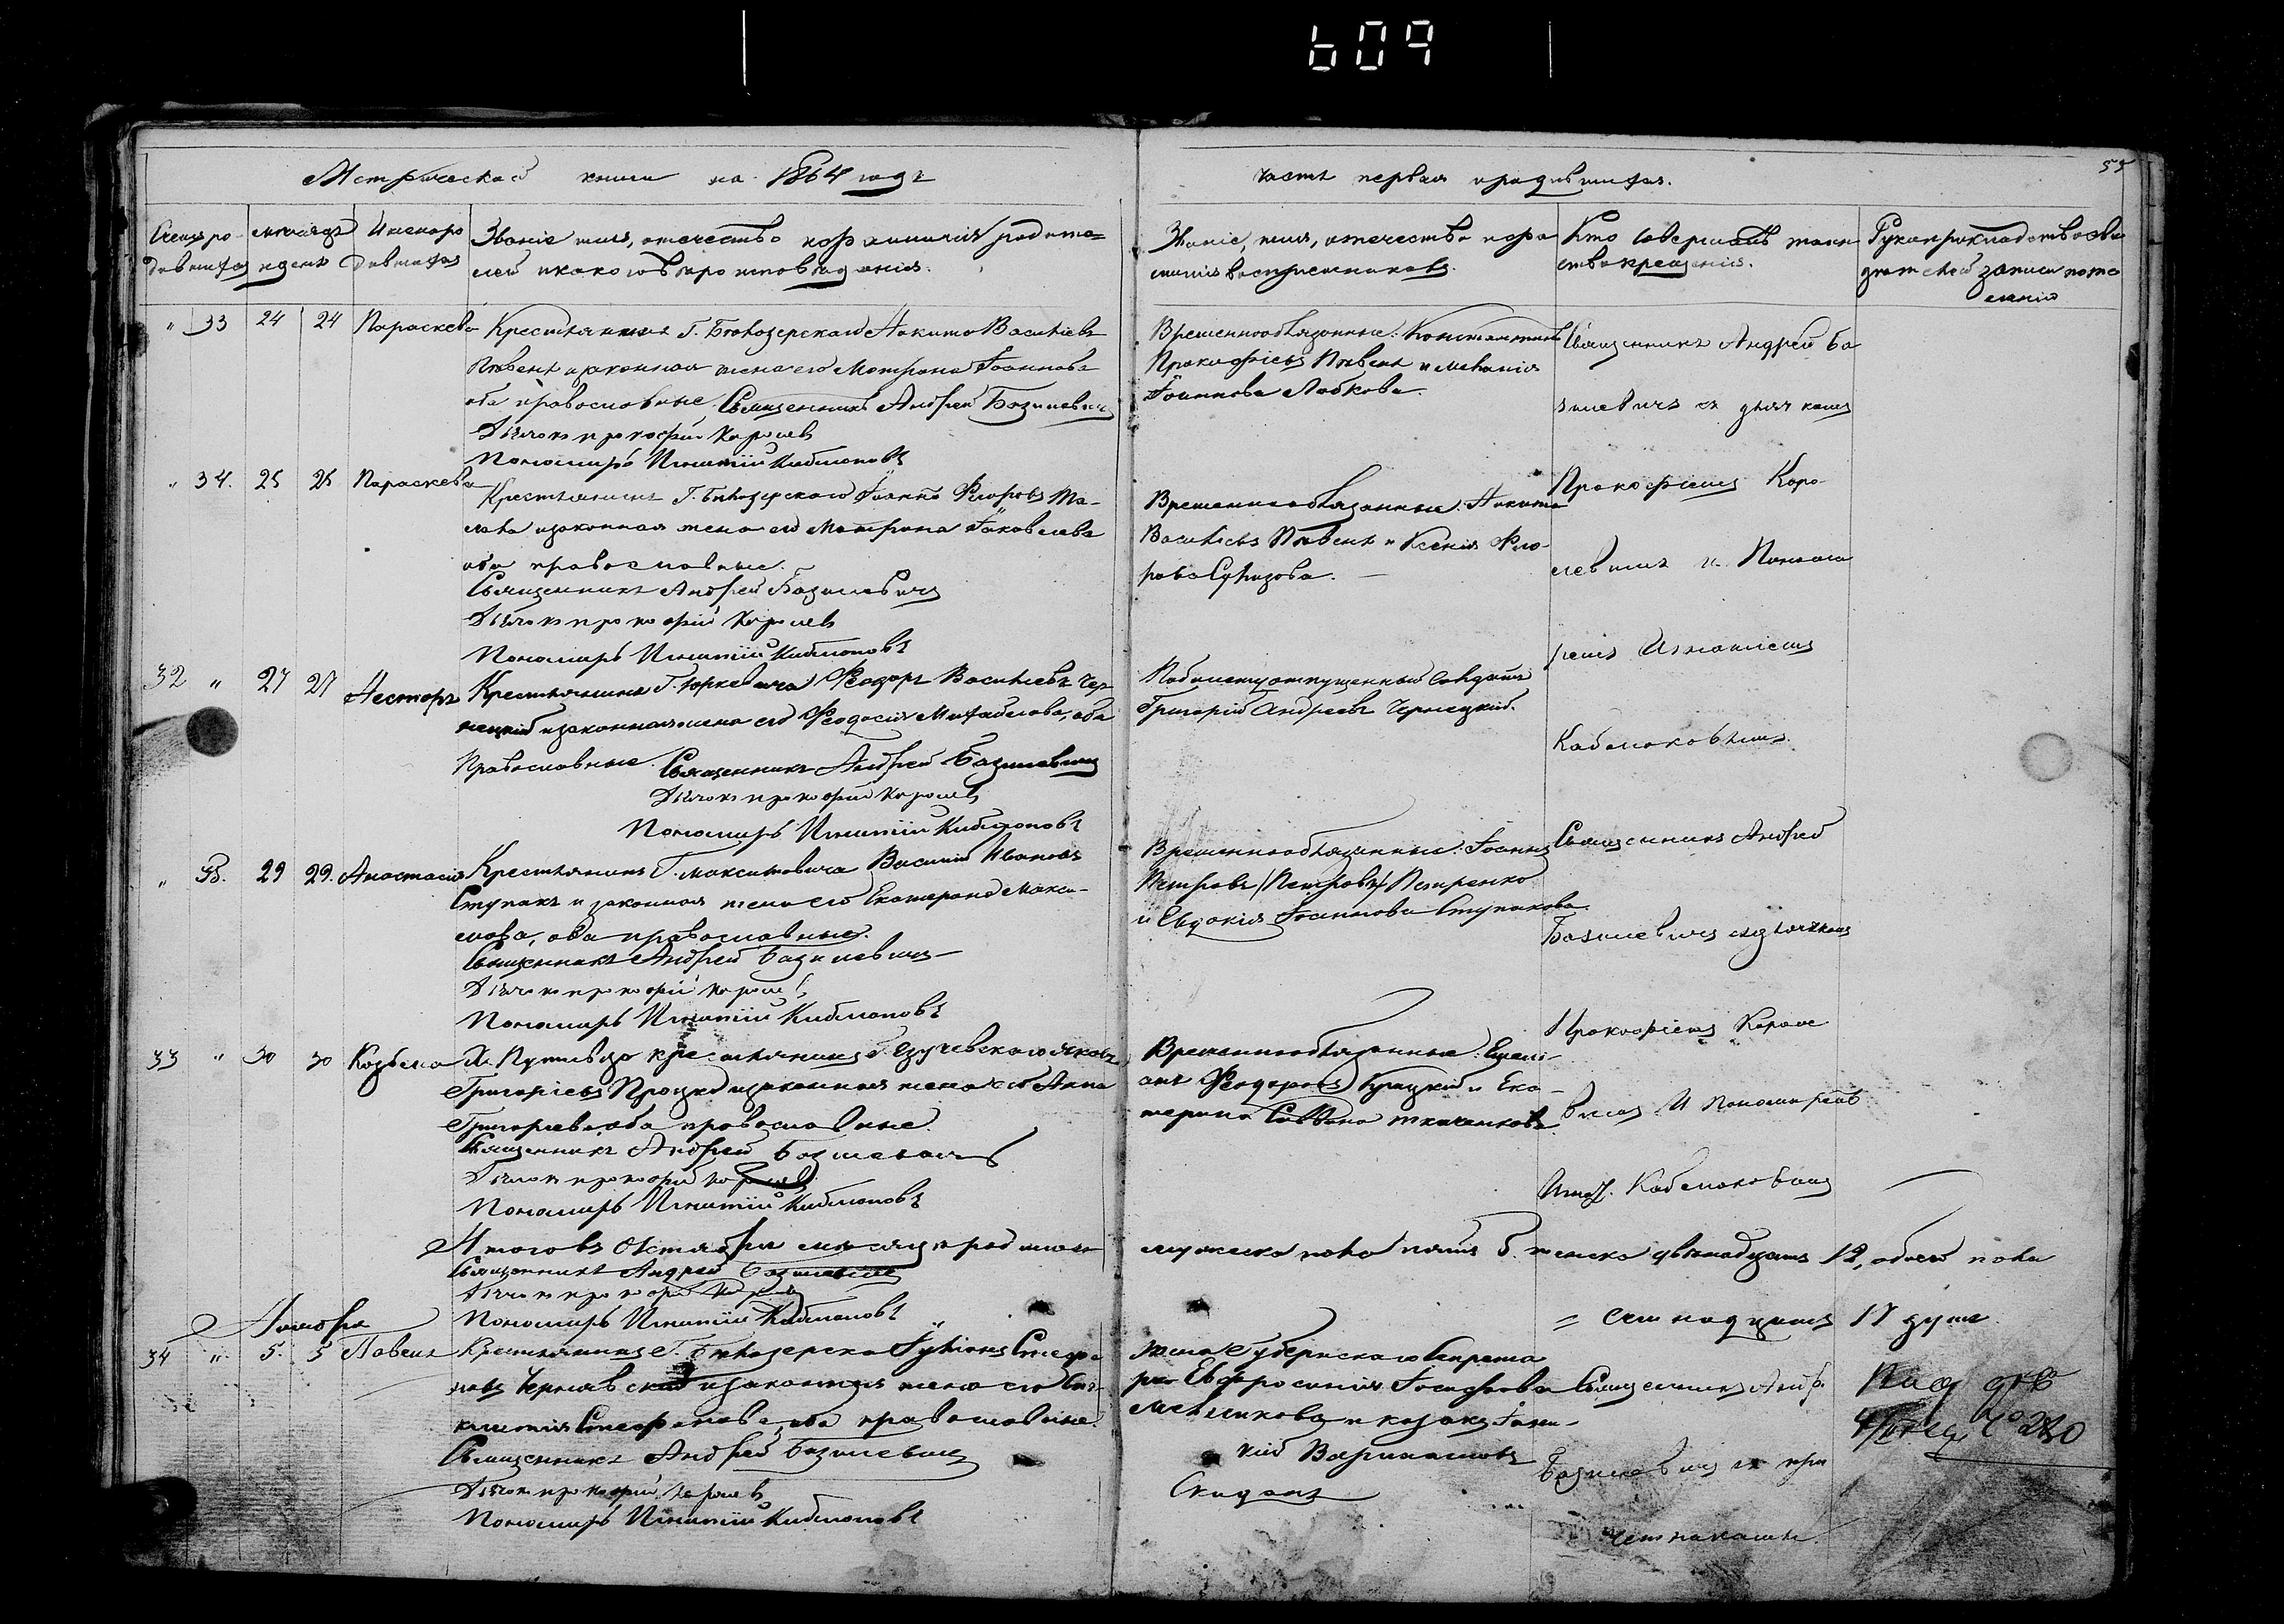 609
55
Метрической книги на 1864 годъ
часть первая о родившихся.
Счетъ ро- мѣсяцъ Имена ро Званіе имя, отечество и фамилія родите=
дившихся и день дившихся лей и какого вѣроисповѣданія.
Званіе, имя, отечество и фа Кто совершалъ таин Рукоприкладство сви
милія воспріемниковъ. ство крещенія. дѣтелей записи по же
ланію
" 33 24 24 Параскева Крестьянинъ Г. Бѣлозерскаго Никита Васильевъ
Пивень и законная жена его Матрона Іоаннова
оба православные. Священникъ Андрей Базилевичъ
Дьячокъ прокофій Королевъ
Пономарь Игнатій Кибалоповъ
Временнообязанные: Константинъ
Прокофіевъ Пивень и Меланія
Іоаннова Лобкова.
Священникъ Андрей Ба
зилевичъ съ дьячкомъ
" 34. 25 25 Параскева Крестьянинъ Г. Бѣлозерскаго Іоаннъ Флоровъ
и законная жена его Матрона Іаковлева
оба православные.
Священникъ Андрей Базилевичъ
Дьячокъ прокофій Королевъ
Пономарь Игнатій Кибалоповъ
Временнообязанные: Никита
Васильевъ Пивень и Ксенія Фло-
рова
Прокофіемъ Коро-
левымъ и Понома
ремъ Игнатіемъ
32 " 27 27 Несторъ Крестьянинъ Г. Юркевича Феодоръ Васильевъ Чер
нецкій и законная жена его Феодосія Михайлова, оба
Православные. Священникъ Андрей Базилевичъ
Дьячокъ прокофій Королевъ
Пономарь Игнатій Кибалоповъ
По билету отпущенный Солдатъ
Григорій Андреевъ Чернецкій.
" 35. 29 29. Анастасія Крестьянинъ Г. Максимовича Василій Ивановъ
Ступакъ и законная жена его Екатерина Макси-
мова, оба православные.
Священникъ Андрей Базилевичъ
Дьячокъ прокофій Королевъ
Пономарь Игнатій Кибалоповъ
Временнообязанные: Іоаннъ
Петровъ /Петровъ/ Петренко
и Евдокія Іоаннова Ступакова.
Священникъ Андрей
Базилевичъ съ дьячкомъ
Прокофіемъ Короле
33 " 30 30 Козьма Х. Путивцо крестьянинъ Яковъ
Григорьевъ Процко и законная жена его Анна
Григорьева оба православные.
Священникъ Андрей Базилевичъ
Дьячокъ прокофій Королевъ
Пономарь Игнатій Кибалоповъ
Временнообязанные:
Феодоровъ и Ека-
терина Саввина Ткаченкова.
вымъ И пономаремъ
Итого въ Октябрѣ мѣсяцѣ родилось
мужеска пола пять 5. женска двѣнадцать 12, обоего пола
= семнадцать 17 душъ.
Священникъ Андрей Базилевичъ
Дьячокъ прокофій Королевъ
Пономарь Игнатій Кибалоповъ
Ноября
34 " 5. 5 Павелъ Крестьянинъ Г. Бѣлозерска Іуліанъ Стефа
новъ Чернявскій и законная жена его
Стефанова, оба православные.
Священникъ Андрей Базилевичъ
Дьячокъ прокофій Королевъ
Пономарь Игнатій Кибалоповъ
Жена Губернскаго Секрета
ря Евфросинія Іосифова
и козакъ
Священникъ Андр.
Базилевичъ съ при
четниками.